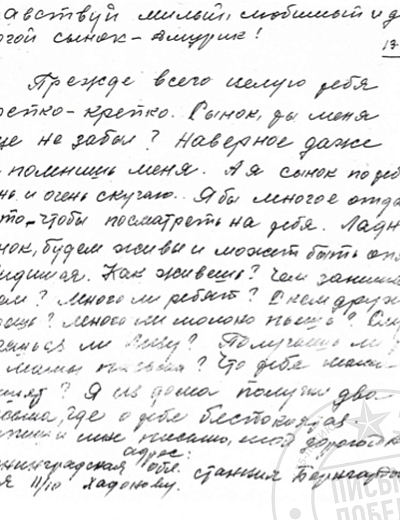 равствуй милый, любимый и д
рогой сынок - Амурик!
13
Прежде всего целую тебя
репко-крепко. Сынок, ты меня
ще не забыл? Наверное даже
помнишь меня. А я сынок по теб
нь и очень скучаю. Я бы многое отда
то, чтобы посмотреть на тебя. Ладн
нок, будем живы и может быть
видимся. Как живешь? Чем занима
там? Много ли ребят? С кем друж
ешь? Много ли молока пьешь? Слу
аешься ли Зину? Получаешь ли
мамы письма? Что тебе мама
шлет? Я из дома получил два
письма, где о тебе беспокоятся
мне письмо, мой дорогой
адрес:
нинградская обл. станция Бернгардо
п/я 11/10 Хадонову.
ПИСЬМА
ПОБЕ